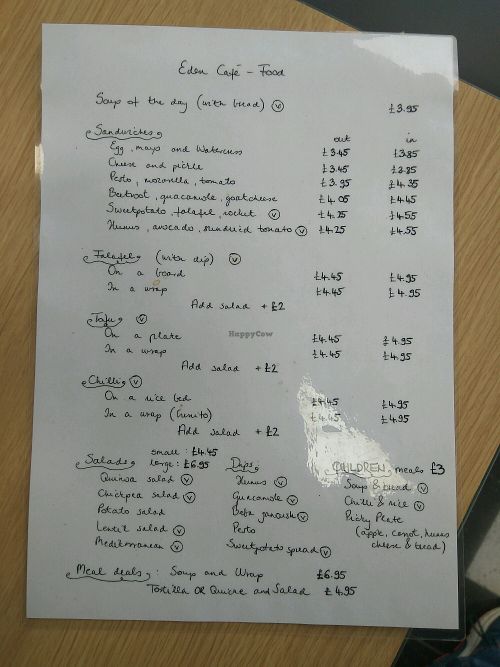 Eden Café - Food
Soup of the day (with bread) V £3.95
Sandwiches out in
Egg, mayo and Watercress £3.45 £3.85
Cheese and pickle £3.45 £3.85
Pesto, mozarella, tomato £3.95 £4.35
Beetroot, guacamole, goatcheese £4.05 £4.45
Sweetpotato, falafel, rocket V £4.25 £4.55
Humus, avocado, sundried tomato V £4.25 £4.55
Falafel (with dip) V
On a board £4.45 £4.95
In a wrap £4.45 £4.95
HappyCow
Add salad + £2
Tofu V
On a plate £4.45 £4.95
In a wrap £4.45 £4.95
Add salad + £2
Chilli V
On a rice bed £4.45 £4.95
In a wrap (burrito) £4.45 £4.95
Add salad + £2
Salads small: £4.45
large: £6.95
Quinoa salad V
Chickpea salad V
Potato salad
Lentil salad V
Mediterranean V
Dips
Humus V
Guacamole V
Baba ganoush V
Pesto
Sweetpotato spread V
CHILDREN meals £3
Soup & bread V
Chilli & rice V
Picky Plate
(apple, carrot, humus
cheese & bread)
Meal deals: Soup and Wrap £6.95
Tortilla OR Quiche and Salad £4.95